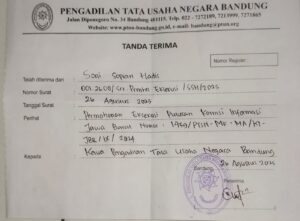 PENGADILAN TATA USAHA NEGARA BANDUNG
Jalan Diponegoro No. 34 Bandung 40115. Telp. 022 - 7272189, 7213999, 7271865
Website: www.ptun-bandung.go.id, e-mail: bandung@ptun.org
TANDA TERIMA
Nomor Register :
Telah diterima dari : Soni Sopian Hadis
Nomor Surat : /SSH/2025
Tanggal Surat : 26 Agustus 2025
Perihal : Permohonan Eksekusi Putusan Komisi Informasi
Jawa Barat Nomor :
JBR/IX/2024
Kepada : Ketua Pengadilan Tata Usaha Negara Bandung
Bandung, 26 Agustus 2025